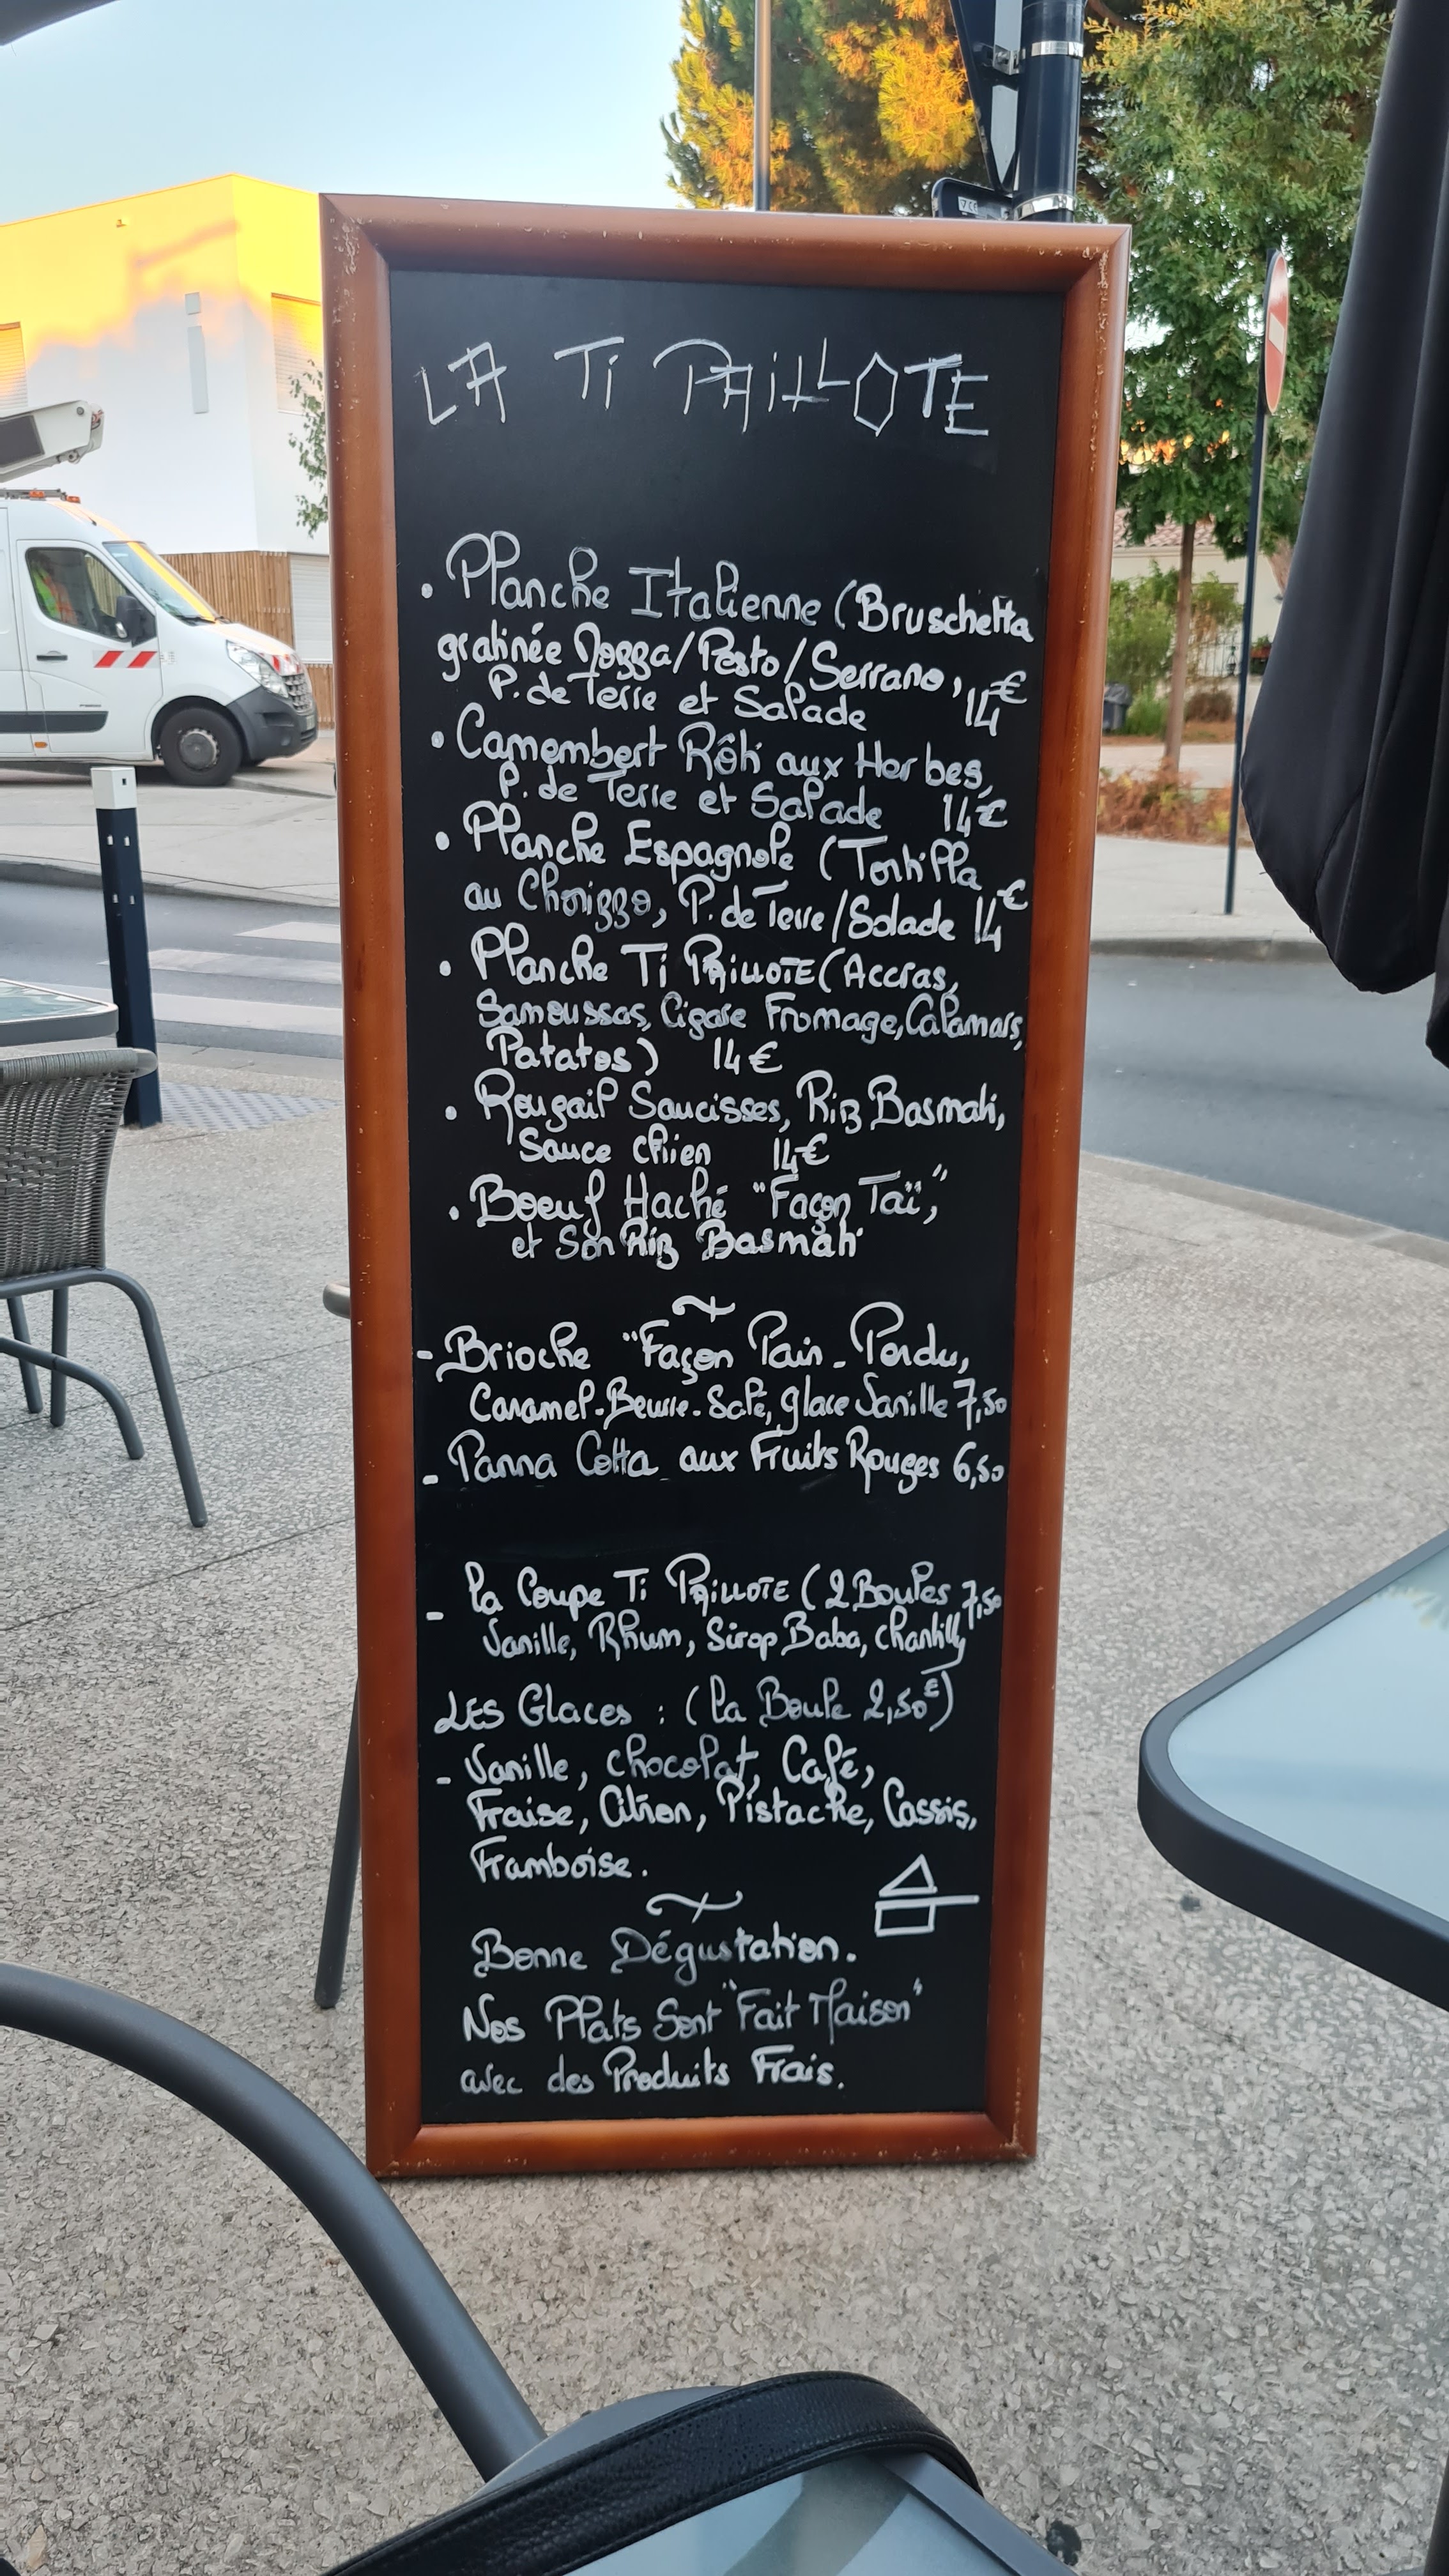 LA Ti PAiLLOTE
• Planche Italienne (Bruschetta
gratinée Mozza/Pesto/Serrano,
P. de Terre et Salade 14€
• Camembert Rôti aux Herbes,
P. de Terre et Salade 14€
• Planche Espagnole (Tortilla
au Chorizzo, P. de Terre/Salade 14€
• Planche Ti PAiLLOTE (Accras,
Samoussas, Cigare Fromage, Calamars,
Patatos) 14€
• Rougail Saucisses, Riz Basmati,
Sauce Chien 14€
• Boeuf Haché "Façon Taï,"
et Son Riz Basmati
~
- Brioche "Façon Pain-Perdu,
Caramel-Beurre-Salé, glace Vanille 7,50
- Panna Cotta aux Fruits Rouges 6,50
- la Coupe Ti PAiLLOTE (2 Boules 7,50
Vanille, Rhum, Sirop Baba, Chantilly
LES Glaces : (la Boule 2,50€)
- Vanille, chocolat, Café,
Fraise, Citron, Pistache, Cassis,
Framboise.
~
Bonne Dégustation.
Nos Plats Sont "Fait Maison"
avec des Produits Frais.